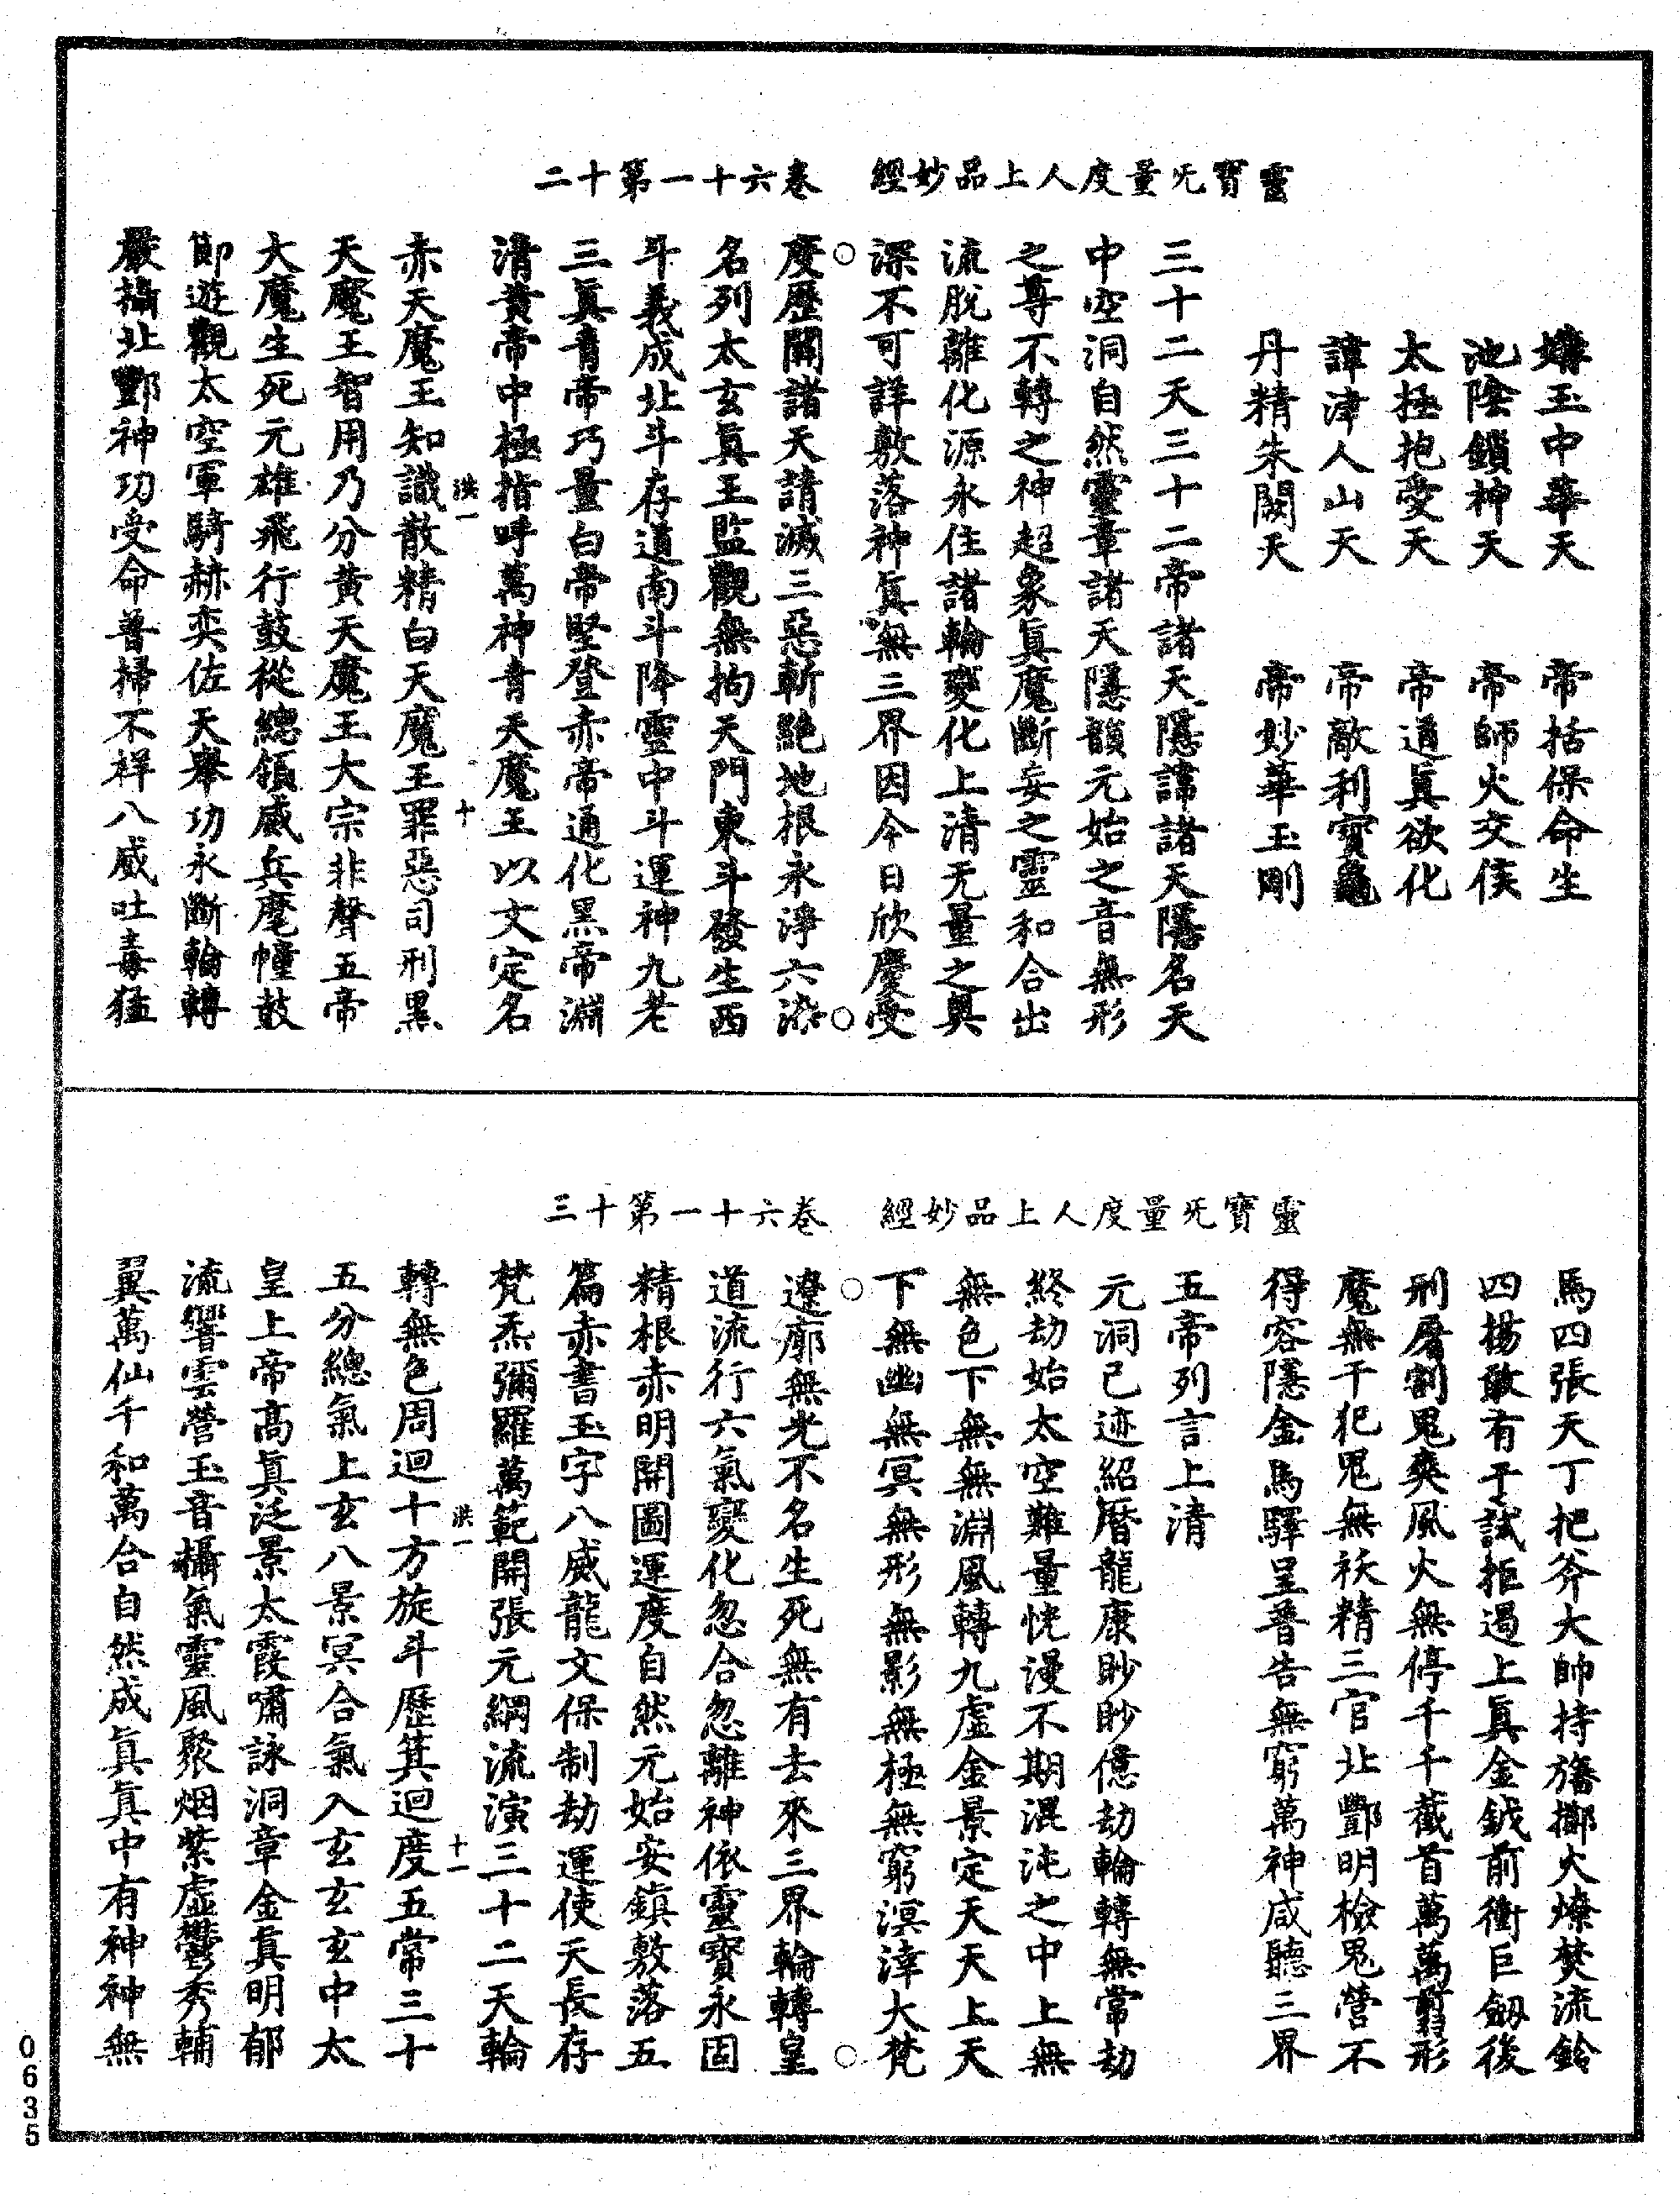 靈寶无量度人上品妙經　卷六十一第十二
玉中華天　帝括保命生
池陰鎖神天　帝師火交侯
太極抱愛天　帝通眞欲化
諱津人山天　帝敵利寶龜
丹精朱闕天　帝妙華玉剛
三十二天三十二帝諸天隱諱諸天隱名天
中空洞自然靈章諸天隱韻元始之音無形
之尊不轉之神超象眞魔斷妄之靈和合出
流脫離化源永住諸輪變化上清无量之奧
深不可詳敷落神眞無三界因今日欣慶受
度歷關諸天請滅三惡斬絕地根永淨六染
名列太玄眞王監觀無拘天門東斗發生西
斗義成北斗存道南斗降靈中斗運神九老
三眞青帝巧量白帝堅登赤帝通化黑帝淵
清黃帝中極指呼萬神青天魔王以文定名
洪一　十
赤天魔王知識散精白天魔王罪惡司刑黑
天魔王智用乃分黃天魔王大宗非聲五帝
大魔生死元雄飛行鼓從總領威兵麾幢鼓
節遊觀太空軍騎赫奕佐天舉功永斷輪轉
嚴攝北酆神功受命普掃不祥八威吐毒猛
靈寶无量度人上品妙經　卷六十一第十三
馬四張天丁把斧大帥持旛擲火燎焚流鈴
四揚敢有干試拒遏上眞金鉞前衝巨劒後
刑屠割鬼爽風火無停千千截首萬萬翦形
魔無干犯鬼無祅精三官北酆明檢鬼營不
得容隱金馬驛呈普告無窮萬神咸聽三界
五帝列言上清
元洞已迹紹曆龍康眇眇億劫輪轉無常劫
終劫始太空難量恍漫不期混沌之中上無
無色下無無淵風轉九虛金景定天天上天
下無幽無冥無形無影無極無窮溟涬大梵
遼廓無光不名生死無有去來三界輪轉皇
道流行六氣變化忽合忽離神依靈寶永固
精根赤明開圖運度自然元始安鎮敷落五
篇赤書玉字八威龍文保制劫運使天長存
梵炁彌羅萬範開張元綱流演三十二天輪
洪一　十一
轉無色周迴十方旋斗歷箕迴度五常三十
五分總氣上玄八景冥合氣入玄玄玄中太
皇上帝高眞泛景太霞嘯詠洞章金眞明郁
流響雲營玉音攝氣靈風聚烟紫虛鬱秀輔
翼萬仙千和萬合自然成眞眞中有神神無
0635